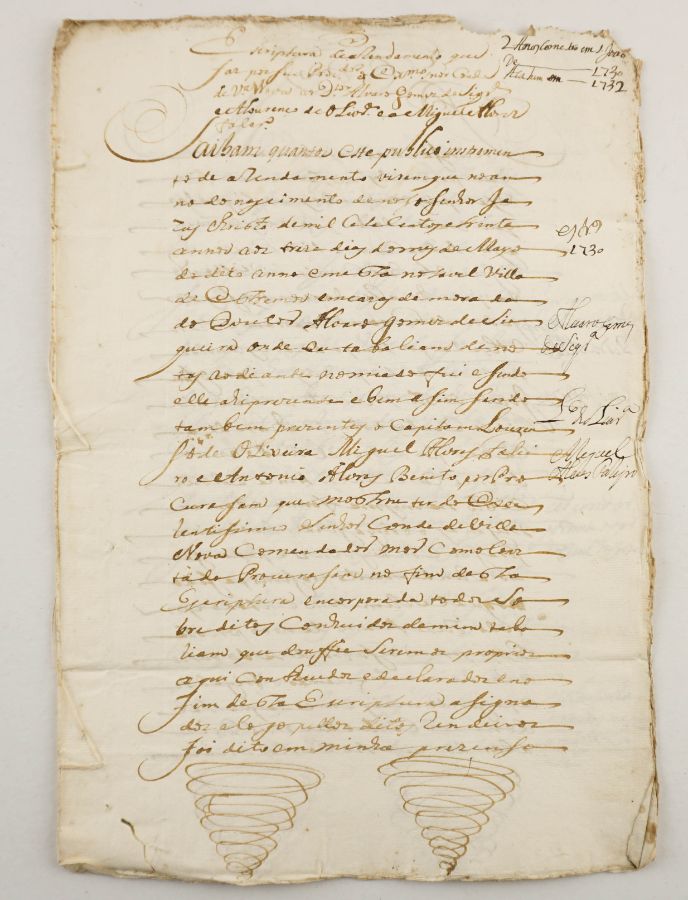 Escriptura de Arendamento que
faz por seu Procurador o Exmo snor Conde
de Va Nova ao Dor Alvaro Gomes de Siqra
e a Lourenco de Olivra e a Miguel Alvez
2 Annos
1730
1732
Saibam quantos este publico instromen
to de a Rendamento virem que no an
no do nascimento de nosso Senhor Je
zus Christo de mil Sete Centos e trinta
annos aos treze dias do mes de Mayo
do dito anno em esta notavel Villa
de Estremos em cazas de morada
do Doutor Alvaro Gomes de Si
queira onde eu tabaliam de no
tas ao diante nomiado fui e sendo
elle ahi prezente e bem asim sendo
tambem prezentes o Capitam Louren
so de Oliveira Miguel Alvez
ro e Antonio Alvez Bento por Pro
curasam que mostrou ter do Exce
lentissimo Senhor Conde de Villa
Nova Comendador mor Como
tada Procurasam no fim desta
Escriptura emcorporada todos So
breditos Conhesidos de mim taba
liam que dou ffee Serem os proprios
aqui contheudos e declarados e no
fim desta Escriptura asigna
dos e logo pellos ditos Rendeiros
foi dito em minha prezensa
1730
Alvaro Gomes
de Siqra
Miguel
Alvez